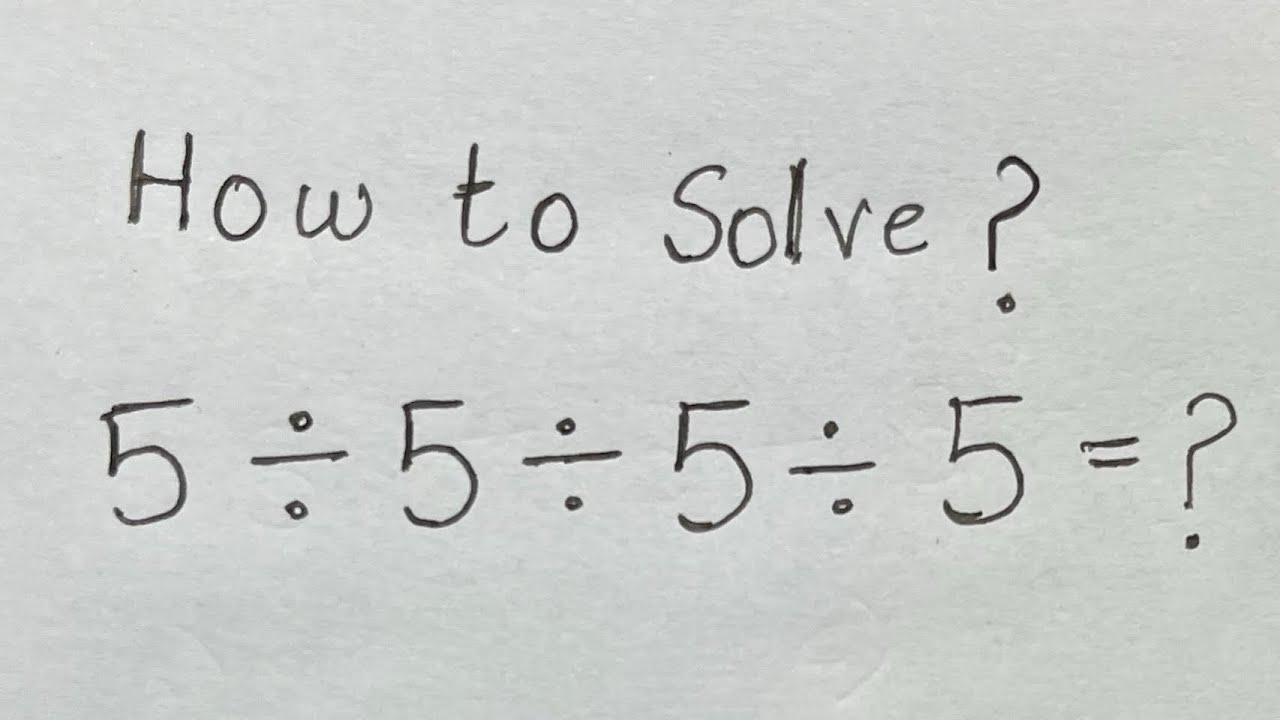 How to Solve?
5 ÷ 5 ÷ 5 ÷ 5 = ?